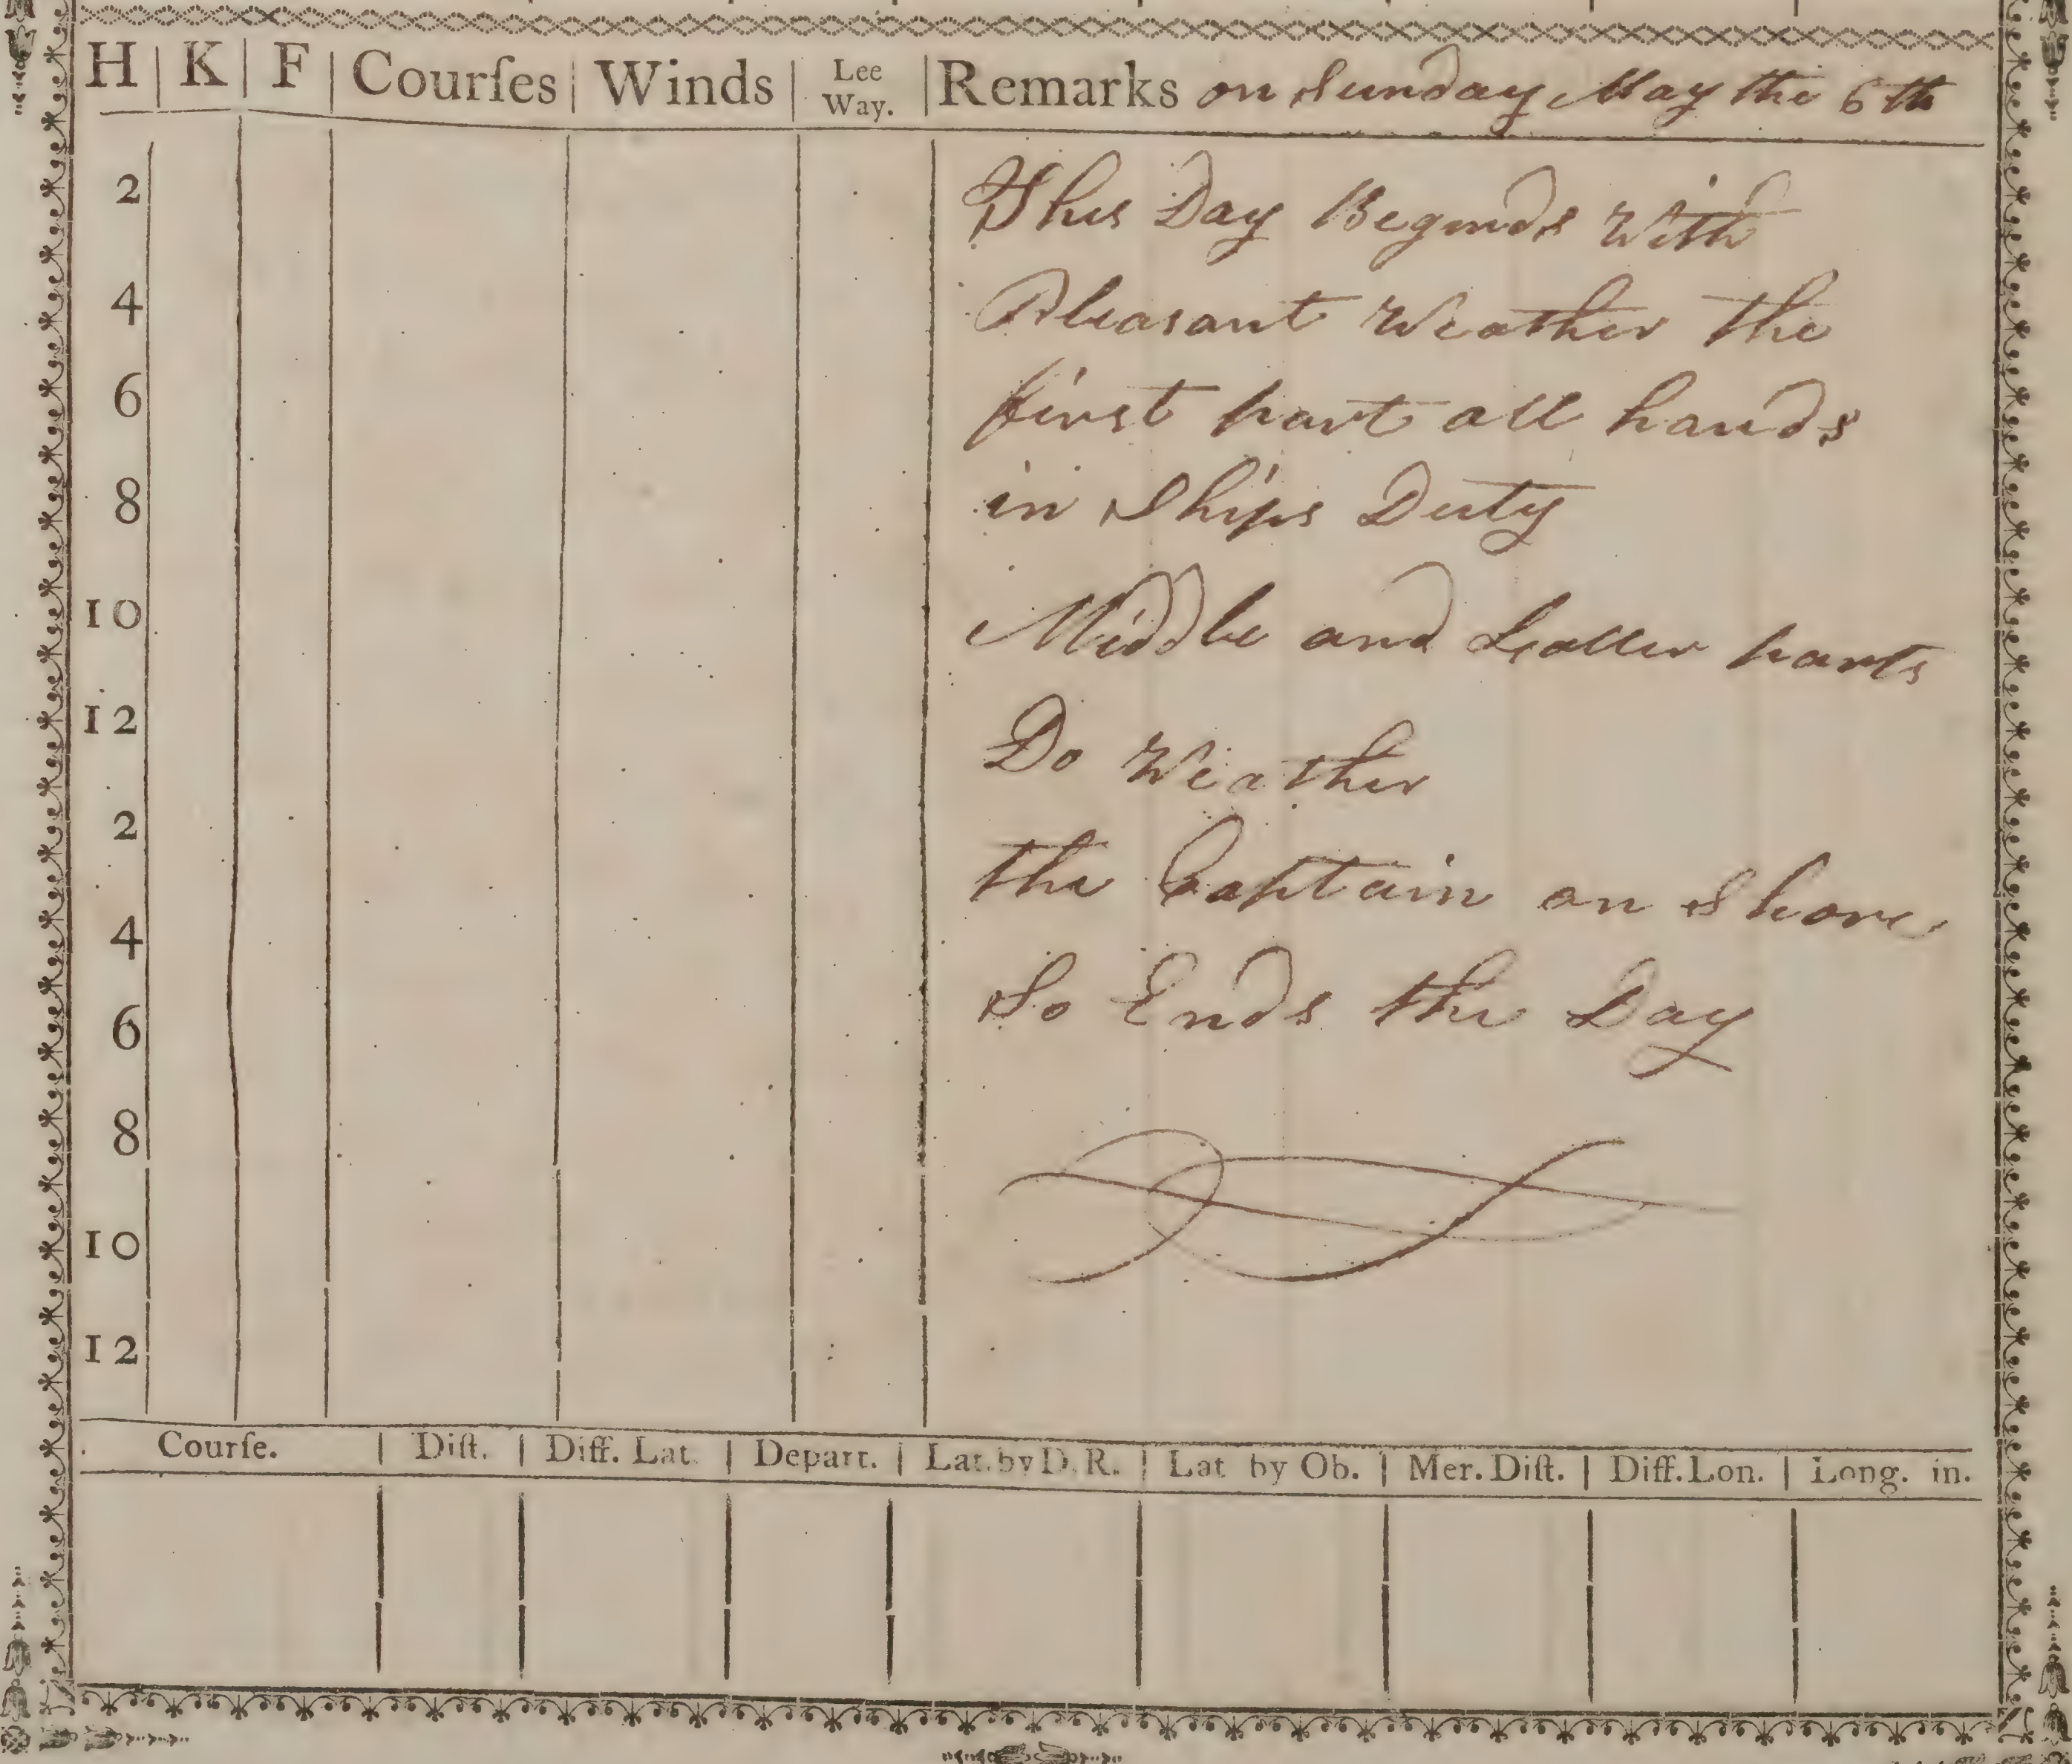 H K F Courſes Winds Lee Way. Remarks on Sunday May the 6th
2
This Day Beginds With
4
Pleasant Weather the
6
first part all hands
8
in Ships Duty
10
Middle and Latter parts
12
Do Weather
2
the Captain on Shore
4
So Ends the Day
6
8
10
12
Courſe. Diſt. Diff. Lat. Depart. Lat. by D. R. Lat by Ob. Mer. Diſt. Diff. Lon. Long. in.